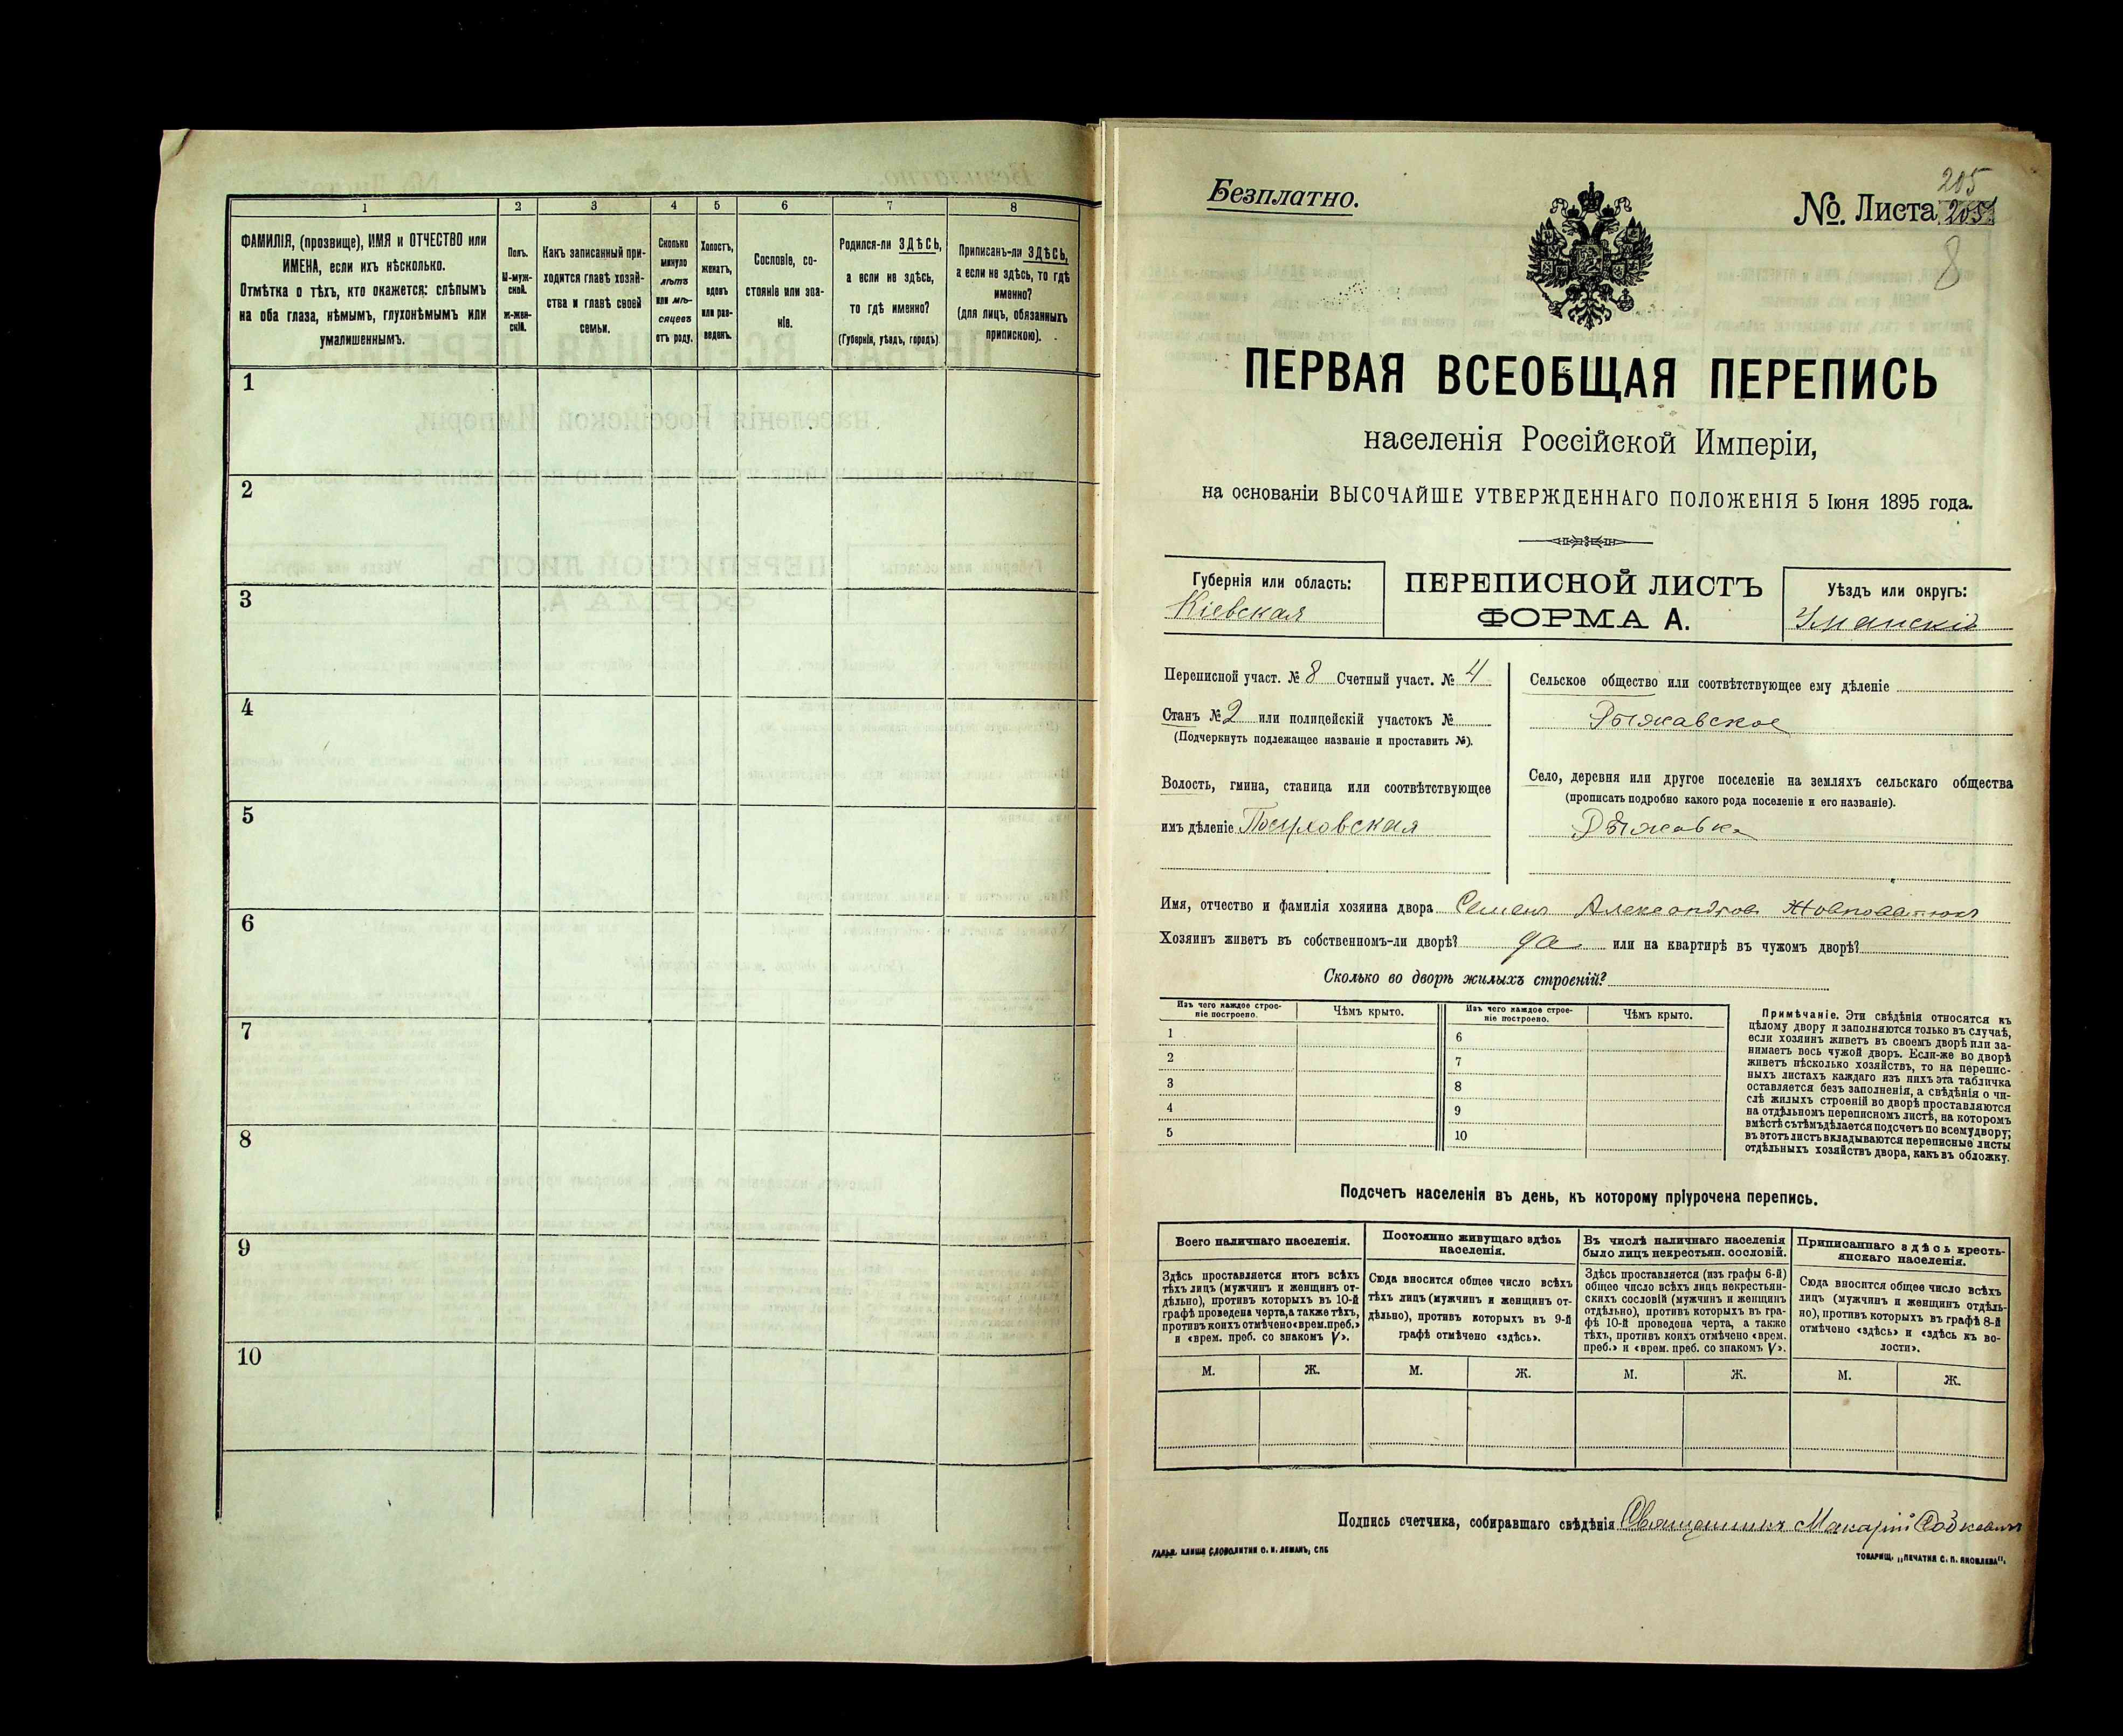 1 2 3 4 5 6 7 8
ФАМИЛІЯ, (прозвище), ИМЯ и ОТЧЕСТВО или
ИМЕНА, если ихъ нѣсколько.
Отмѣтка о тѣхъ, кто окажется: слѣпымъ
на оба глаза, нѣмымъ, глухонѣмымъ или
умалишеннымъ.
Полъ.
М-муж-
ской.
Ж-жен-
скій.
Какъ записанный при-
ходится главѣ хозяй-
ства и главѣ своей
семьи.
Сколько
минуло
лѣтъ
или мѣ-
сяцевъ
отъ роду.
Холостъ,
женатъ,
вдовъ
или раз-
веденъ.
Сословіе, со-
стояніе или зва-
ніе.
Родился-ли ЗДѢСЬ,
а если не здѣсь,
то гдѣ именно?
(Губернія, уѣздъ, городъ)
Приписанъ-ли ЗДѢСЬ,
а если не здѣсь, то гдѣ
именно?
(для лицъ, обязанныхъ
припискою).
1
2
3
4
5
6
7
8
9
10
205
Безплатно.
№. Листа 205
8
ПЕРВАЯ ВСЕОБЩАЯ ПЕРЕПИСЬ
населенія Россійской Имперіи,
на основаніи ВЫСОЧАЙШЕ УТВЕРЖДЕННАГО ПОЛОЖЕНІЯ 5 Іюня 1895 года.
Губернія или область:
Кіевская
ПЕРЕПИСНОЙ ЛИСТЪ
ФОРМА А.
Уѣздъ или округъ:
Уманскій
Переписной участ. № 8 Счетный участ. № 4
Станъ № 2 или полицейскій участокъ №
(Подчеркнуть подлежащее названіе и проставить №).
Волость, гмина, станица или соотвѣтствующее
имъ дѣленіе
Сельское общество или соотвѣтствующее ему дѣленіе
Рыжавское
Село, деревня или другое поселеніе на земляхъ сельскаго общества
(прописать подробно какого рода поселеніе и его названіе).
Рыжавка
Имя, отчество и фамилія хозяина двора Семенъ Александровъ
Хозяинъ живетъ въ собственномъ-ли дворѣ? да или на квартирѣ въ чужомъ дворѣ?
Сколько во дворѣ жилыхъ строеній?
Изъ чего каждое строе-
ніе построено.
Чѣмъ крыто.
Изъ чего каждое строе-
ніе построено.
Чѣмъ крыто.
1
2
3
4
5
6
7
8
9
10
Примѣчаніе. Эти свѣдѣнія относятся къ
цѣлому двору и заполняются только въ случаѣ,
если хозяинъ живетъ въ своемъ дворѣ или за-
нимаетъ весь чужой дворъ. Если-же во дворѣ
живетъ нѣсколько хозяйствъ, то на перепис-
ныхъ листахъ каждаго изъ нихъ эта табличка
оставляется безъ заполненія, а свѣдѣнія о чи-
слѣ жилыхъ строеній во дворѣ проставляются
на отдѣльномъ переписномъ листѣ, на которомъ
вмѣстѣ съ тѣмъ дѣлается подсчетъ по всему двору;
въ этотъ листъ вкладываются переписные листы
отдѣльныхъ хозяйствъ двора, какъ въ обложку.
Подсчетъ населенія въ день, къ которому пріурочена перепись.
Всего наличнаго населенія.
Здѣсь проставляется итогъ всѣхъ
тѣхъ лицъ (мужчинъ и женщинъ от-
дѣльно), противъ которыхъ въ 10-й
графѣ проведена черта, а также тѣхъ,
противъ коихъ отмѣчено «врем. преб.»
и «врем. преб. со знакомъ V».
Постоянно живущаго здѣсь
населенія.
Сюда вносится общее число всѣхъ
тѣхъ лицъ (мужчинъ и женщинъ от-
дѣльно), противъ которыхъ въ 9-й
графѣ отмѣчено «здѣсь».
Въ числѣ наличнаго населенія
было лицъ некрестьян. сословій.
Здѣсь проставляется (изъ графы 6-й)
общее число всѣхъ лицъ некрестьян-
скихъ сословій (мужчинъ и женщинъ
отдѣльно), противъ которыхъ въ гра-
фѣ 10-й проведена черта, а также
тѣхъ, противъ коихъ отмѣчено «врем.
преб.» и «врем. преб. со знакомъ V».
Приписаннаго здѣсь кресть-
янскаго населенія.
Сюда вносится общее число всѣхъ
лицъ (мужчинъ и женщинъ отдѣль-
но), противъ которыхъ въ графѣ 8-й
отмѣчено «здѣсь» и «здѣсь къ во-
лости».
М. Ж. М. Ж. М. Ж. М. Ж.
Подпись счетчика, собиравшаго свѣдѣнія Священникъ Макарій
ГАЛЬВ. КЛИШЕ СЛОВОЛИТНИ О. И. ЛЕМАНЪ, СПБ
ТОВАРИЩ. „ПЕЧАТНЯ С. П. ЯКОВЛЕВА".